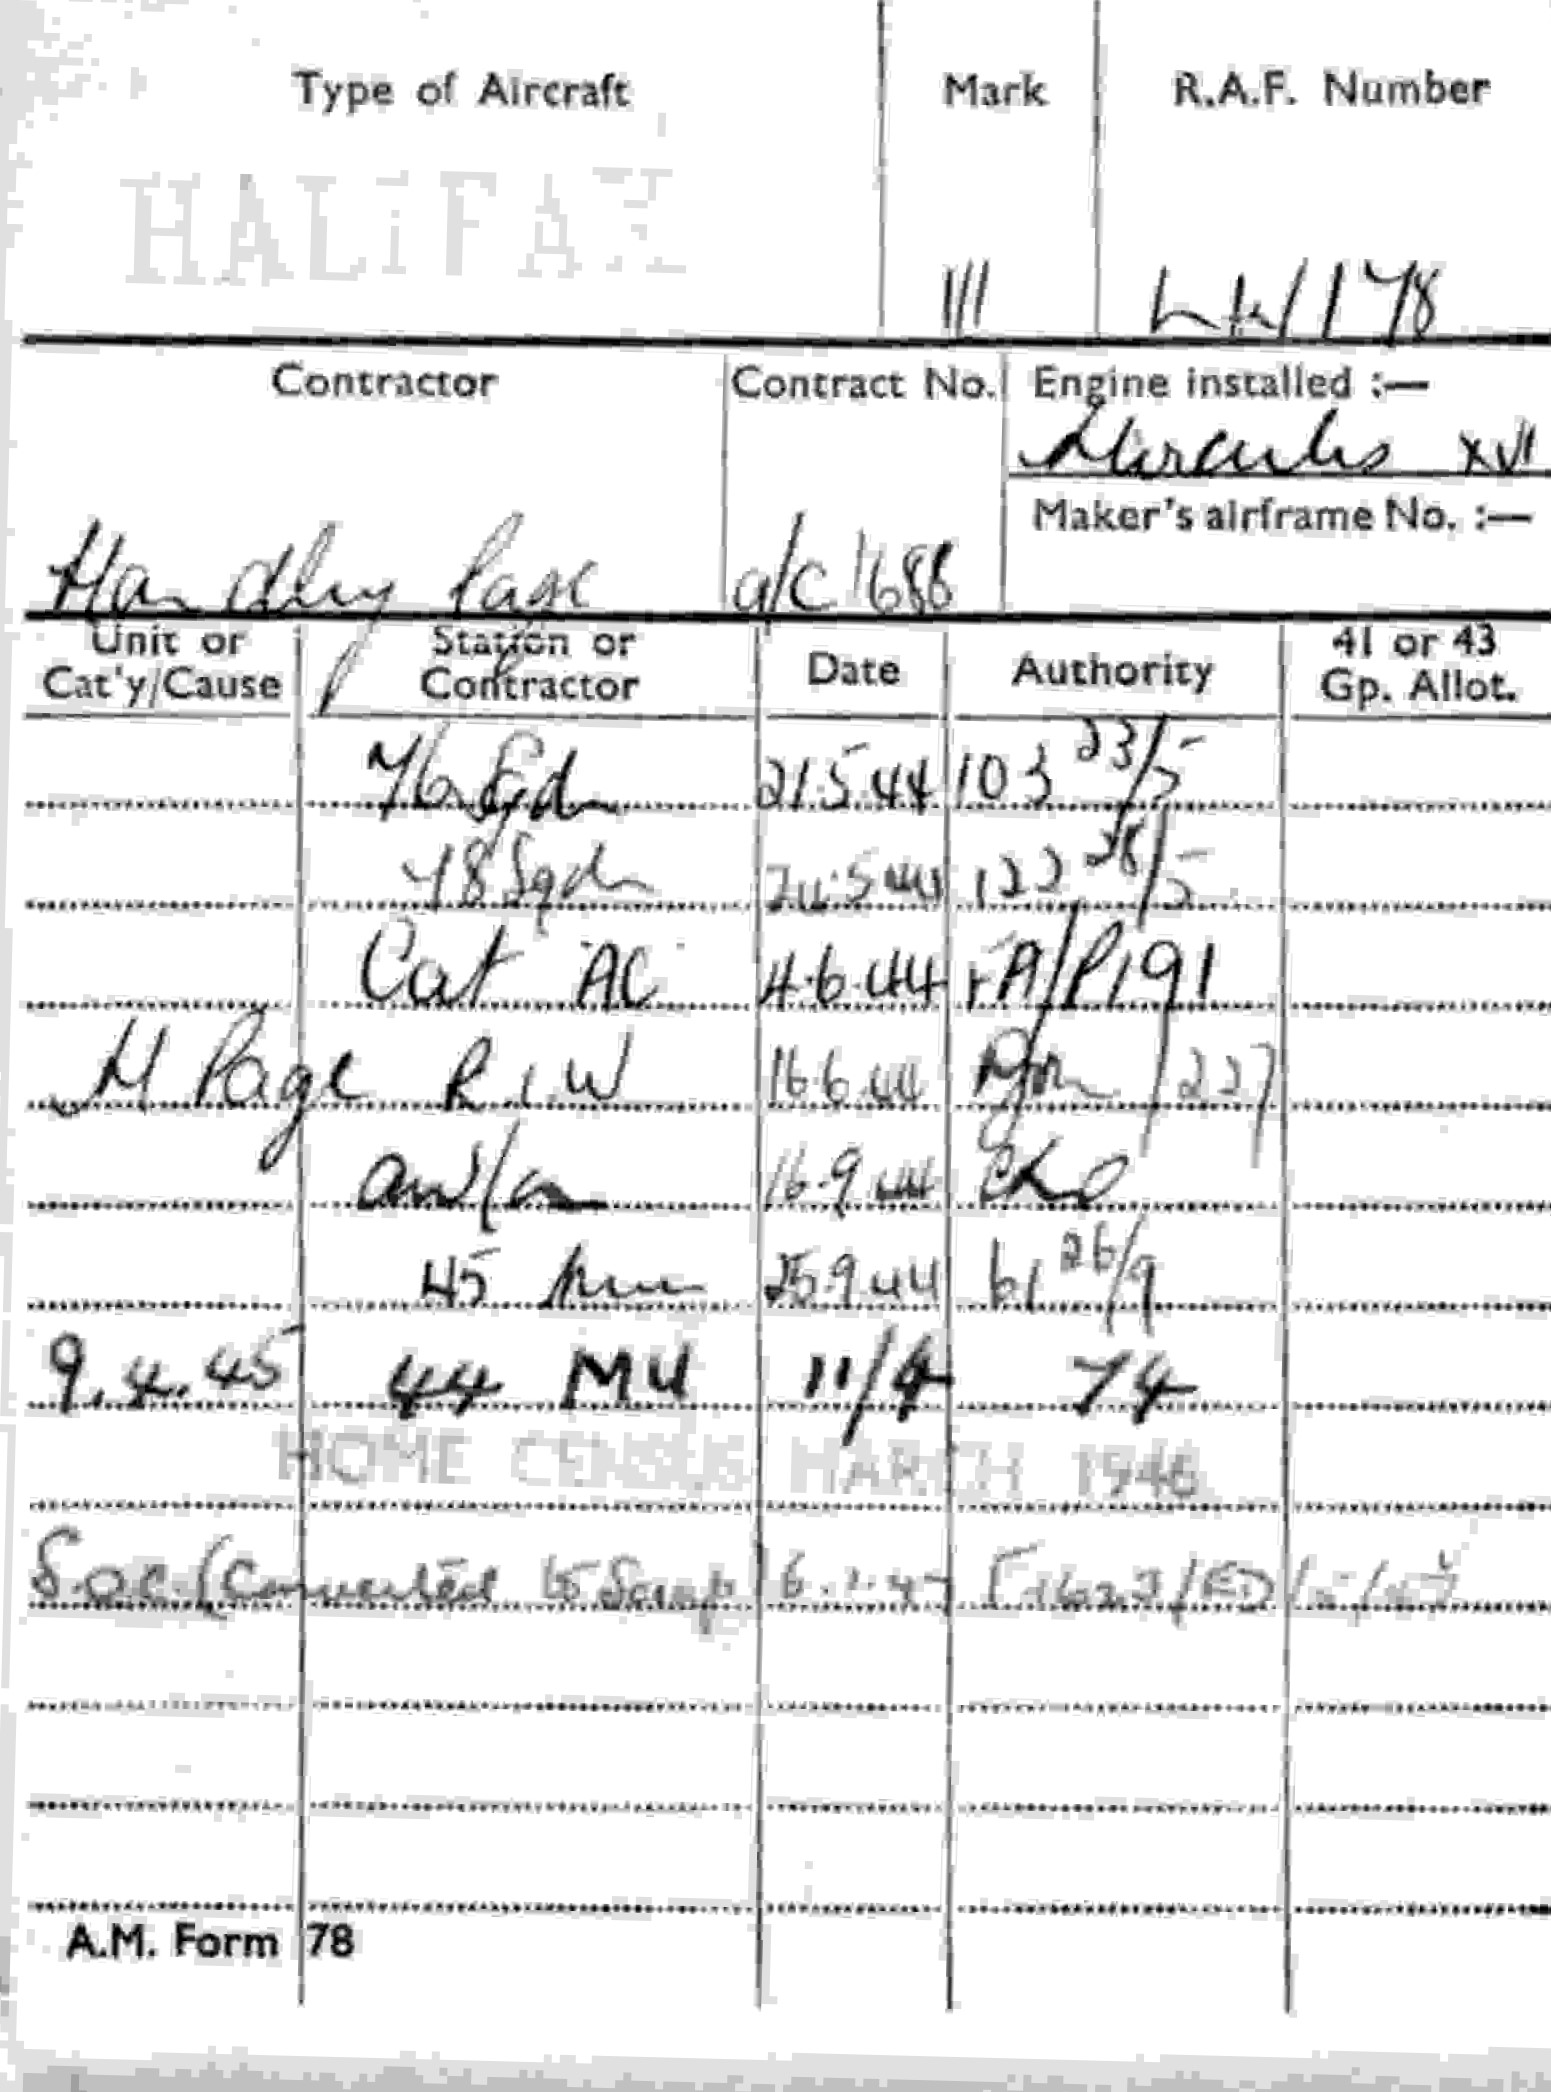 Type of Aircraft Mark R.A.F. Number
HALiFAX III LW/178
Contractor Contract No. Engine installed :—
Hercules XVI
Maker's airframe No. :—
Handley Page a/c 1688
Unit or Cat'y/Cause Station or Contractor Date Authority 41 or 43 Gp. Allot.
76 Sqdn 21.5.44 103 23/5
78 Sqdn 24.5.44 122 28/5
Cat AC 4.6.44 FA/P191
H Page R.I.W 16.6.44 /227
16.9.44
45 25.9.44 61 26/9
9.4.45 44 MU 11/4 74
HOME CENSUS MARCH 1946
S.O.C. (Converted to Scrap) 6.
A.M. Form 78